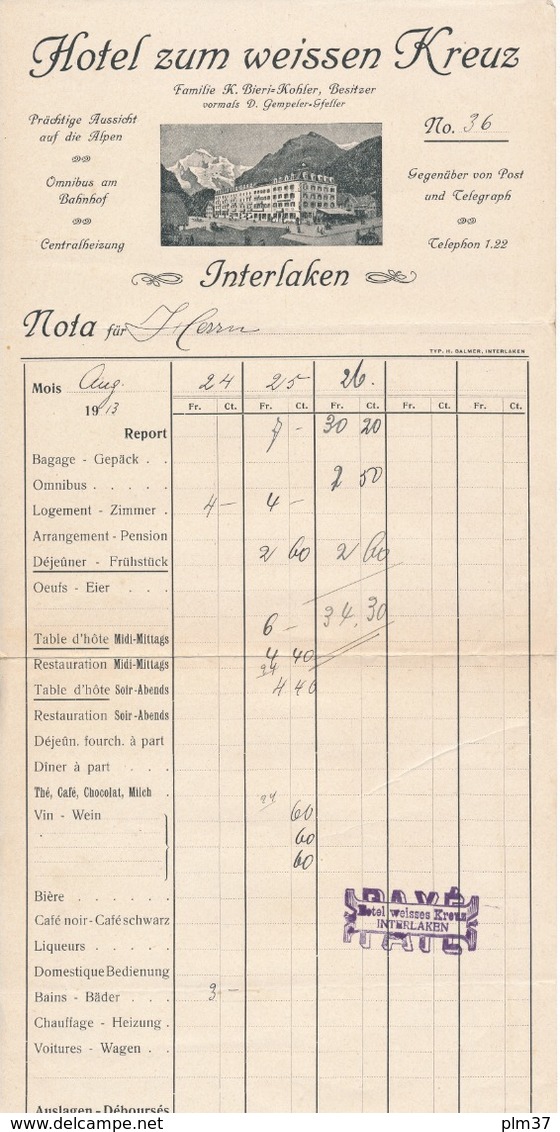 Hotel zum weissen Kreuz
Familie K. Bieri-Kohler, Besitzer
vormals D. Gempeler-Gfeller
Prächtige Aussicht
auf die Alpen
Omnibus am
Bahnhof
Centralheizung
No. 36
Gegenüber von Post
und Telegraph
Telephon 1.22
Interlaken
Nota für Herrn
TYP. H. BALMER, INTERLAKEN
Mois Aug. 24 25 26.
1913 Fr. Ct. Fr. Ct. Fr. Ct. Fr. Ct. Fr. Ct.
Report 7 - 30 20
Bagage - Gepäck . .
Omnibus . . . . . 2 50
Logement - Zimmer . 4 - 4 -
Arrangement - Pension
Déjeûner - Frühstück 2 60 2 60
Oeufs - Eier . . .
34.30
Table d'hôte Midi-Mittags 6 -
Restauration Midi-Mittags 4 40
Table d'hôte Soir-Abends 24 4 40
Restauration Soir-Abends
Déjeûn. fourch. à part
Dîner à part . . .
Thé, Café, Chocolat, Milch .
Vin - Wein 24 60
60
60
Bière . . . . . .
Café noir - Café schwarz
Liqueurs . . . .
Domestique Bedienung
Bains - Bäder . . . 3 -
Chauffage - Heizung .
Voitures - Wagen . .
Auslagen - Déboursés
PAYÉ
Hotel weisses Kreuz
INTERLAKEN
delcampe.net
plm37